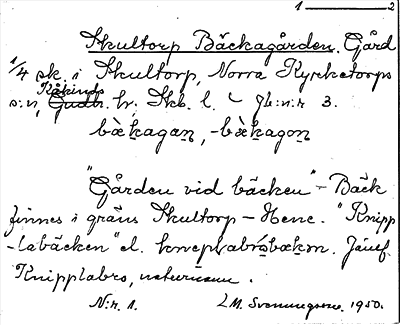 1 — 2
Skultorp Bäckagården. Gård
1/4 sk. i Skultorp, Norra Kyrketorps
Kåkinds
s:n, Gudh. hr, Skb. l. gb:n:r 3.
bæ̀kagan̥, -bæ̀kagon
"Gården vid bäcken" - Bäck
finnes i gräns Skultorp - Hene. "Knipp
-labäcken" el. knep labrobækən. Jämf.
Knipplabro, naturnamn.
N:r. 1. L.M. Svenungsson. 1950.